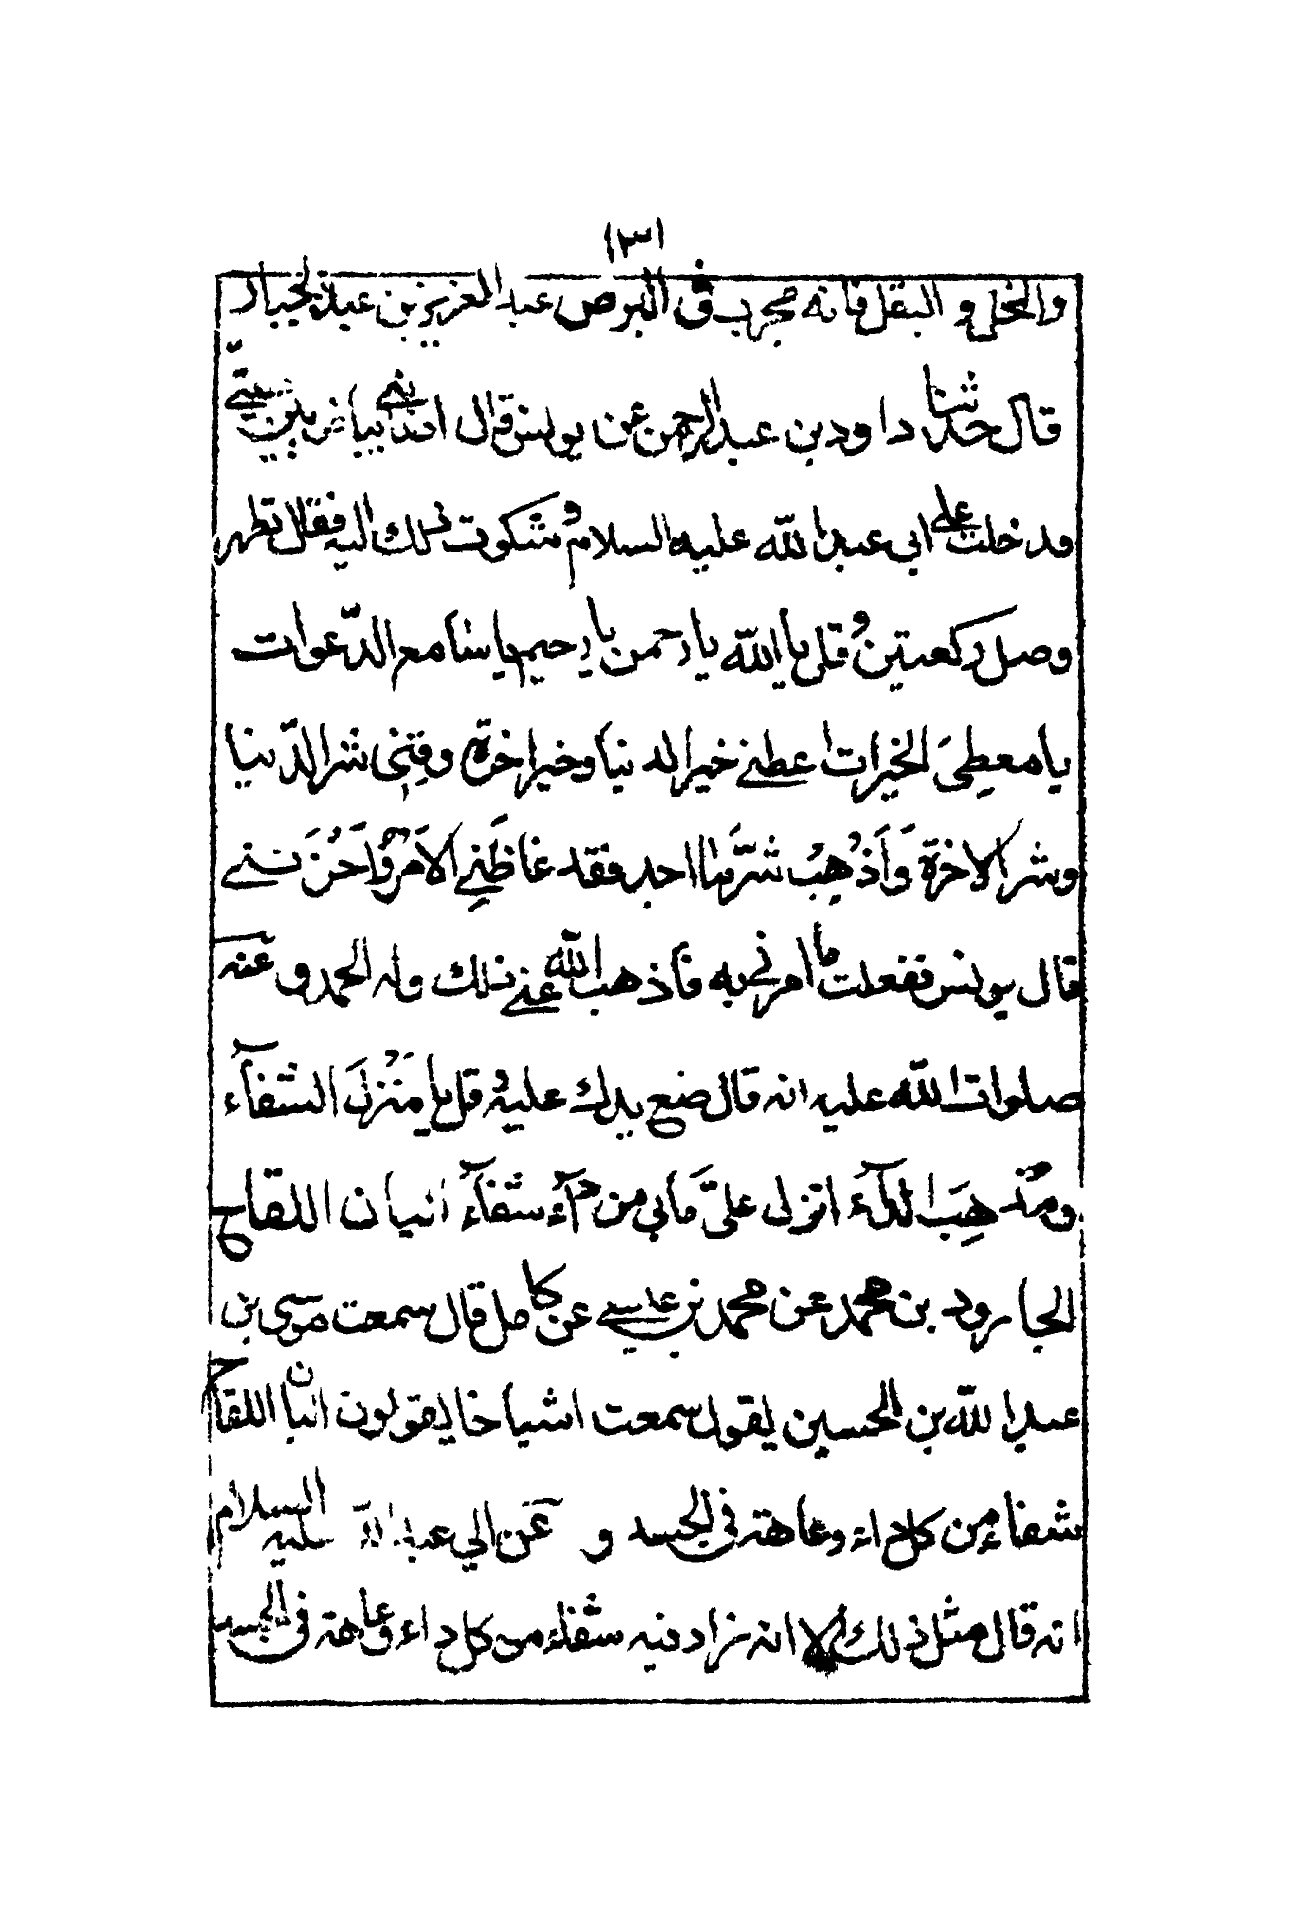 ١٣١
والخل و البقل فانه مجرب فى البرص عبد العزيز بن عبد الجبار
قال حدثنا داود بن عبد الرحمن عن يونس قال اصابنى بياض بين عينى
فدخلت على ابى عبد الله عليه السلام و شكوت ذلك اليه فقال تطهر
وصل ركعتين و قل يا الله يا رحمن يا رحيم يا سامع الدّعوات
يا معطى الخيرات اعطنى خير الدنيا وخير اخرة وقِنى شر الدّنيا
وشر الاخرة وَاَذهِبْ شَرّ ما احد فقد غاظَنِى الاَمرُ وَاَحْزَننى
قال يونس ففعلت ما امرنى به فأذهب الله عنى ذلك وله الحمد و عنه
صلوات الله عليه انه قال ضع يدك عليه و قل يا مُنْزِلَ الشفآء
ومُذهِبَ الدآء انزل علىّ ما بى من دآء شفآء اتيان اللقاح
الجارود بن محمد عن محمد بن عيسى عن كامل قال سمعت موسى بن
عبد الله بن الحسين يقول سمعت اشياخنا يقولون البان اللقاح
شفاء من كل داء وعاهة فى الجسد و عن ابي عبد الله عليه السلام
انه قال مثل ذلك الا انه زاد فيه شفاء من كل داء و عاهة فى الجسد